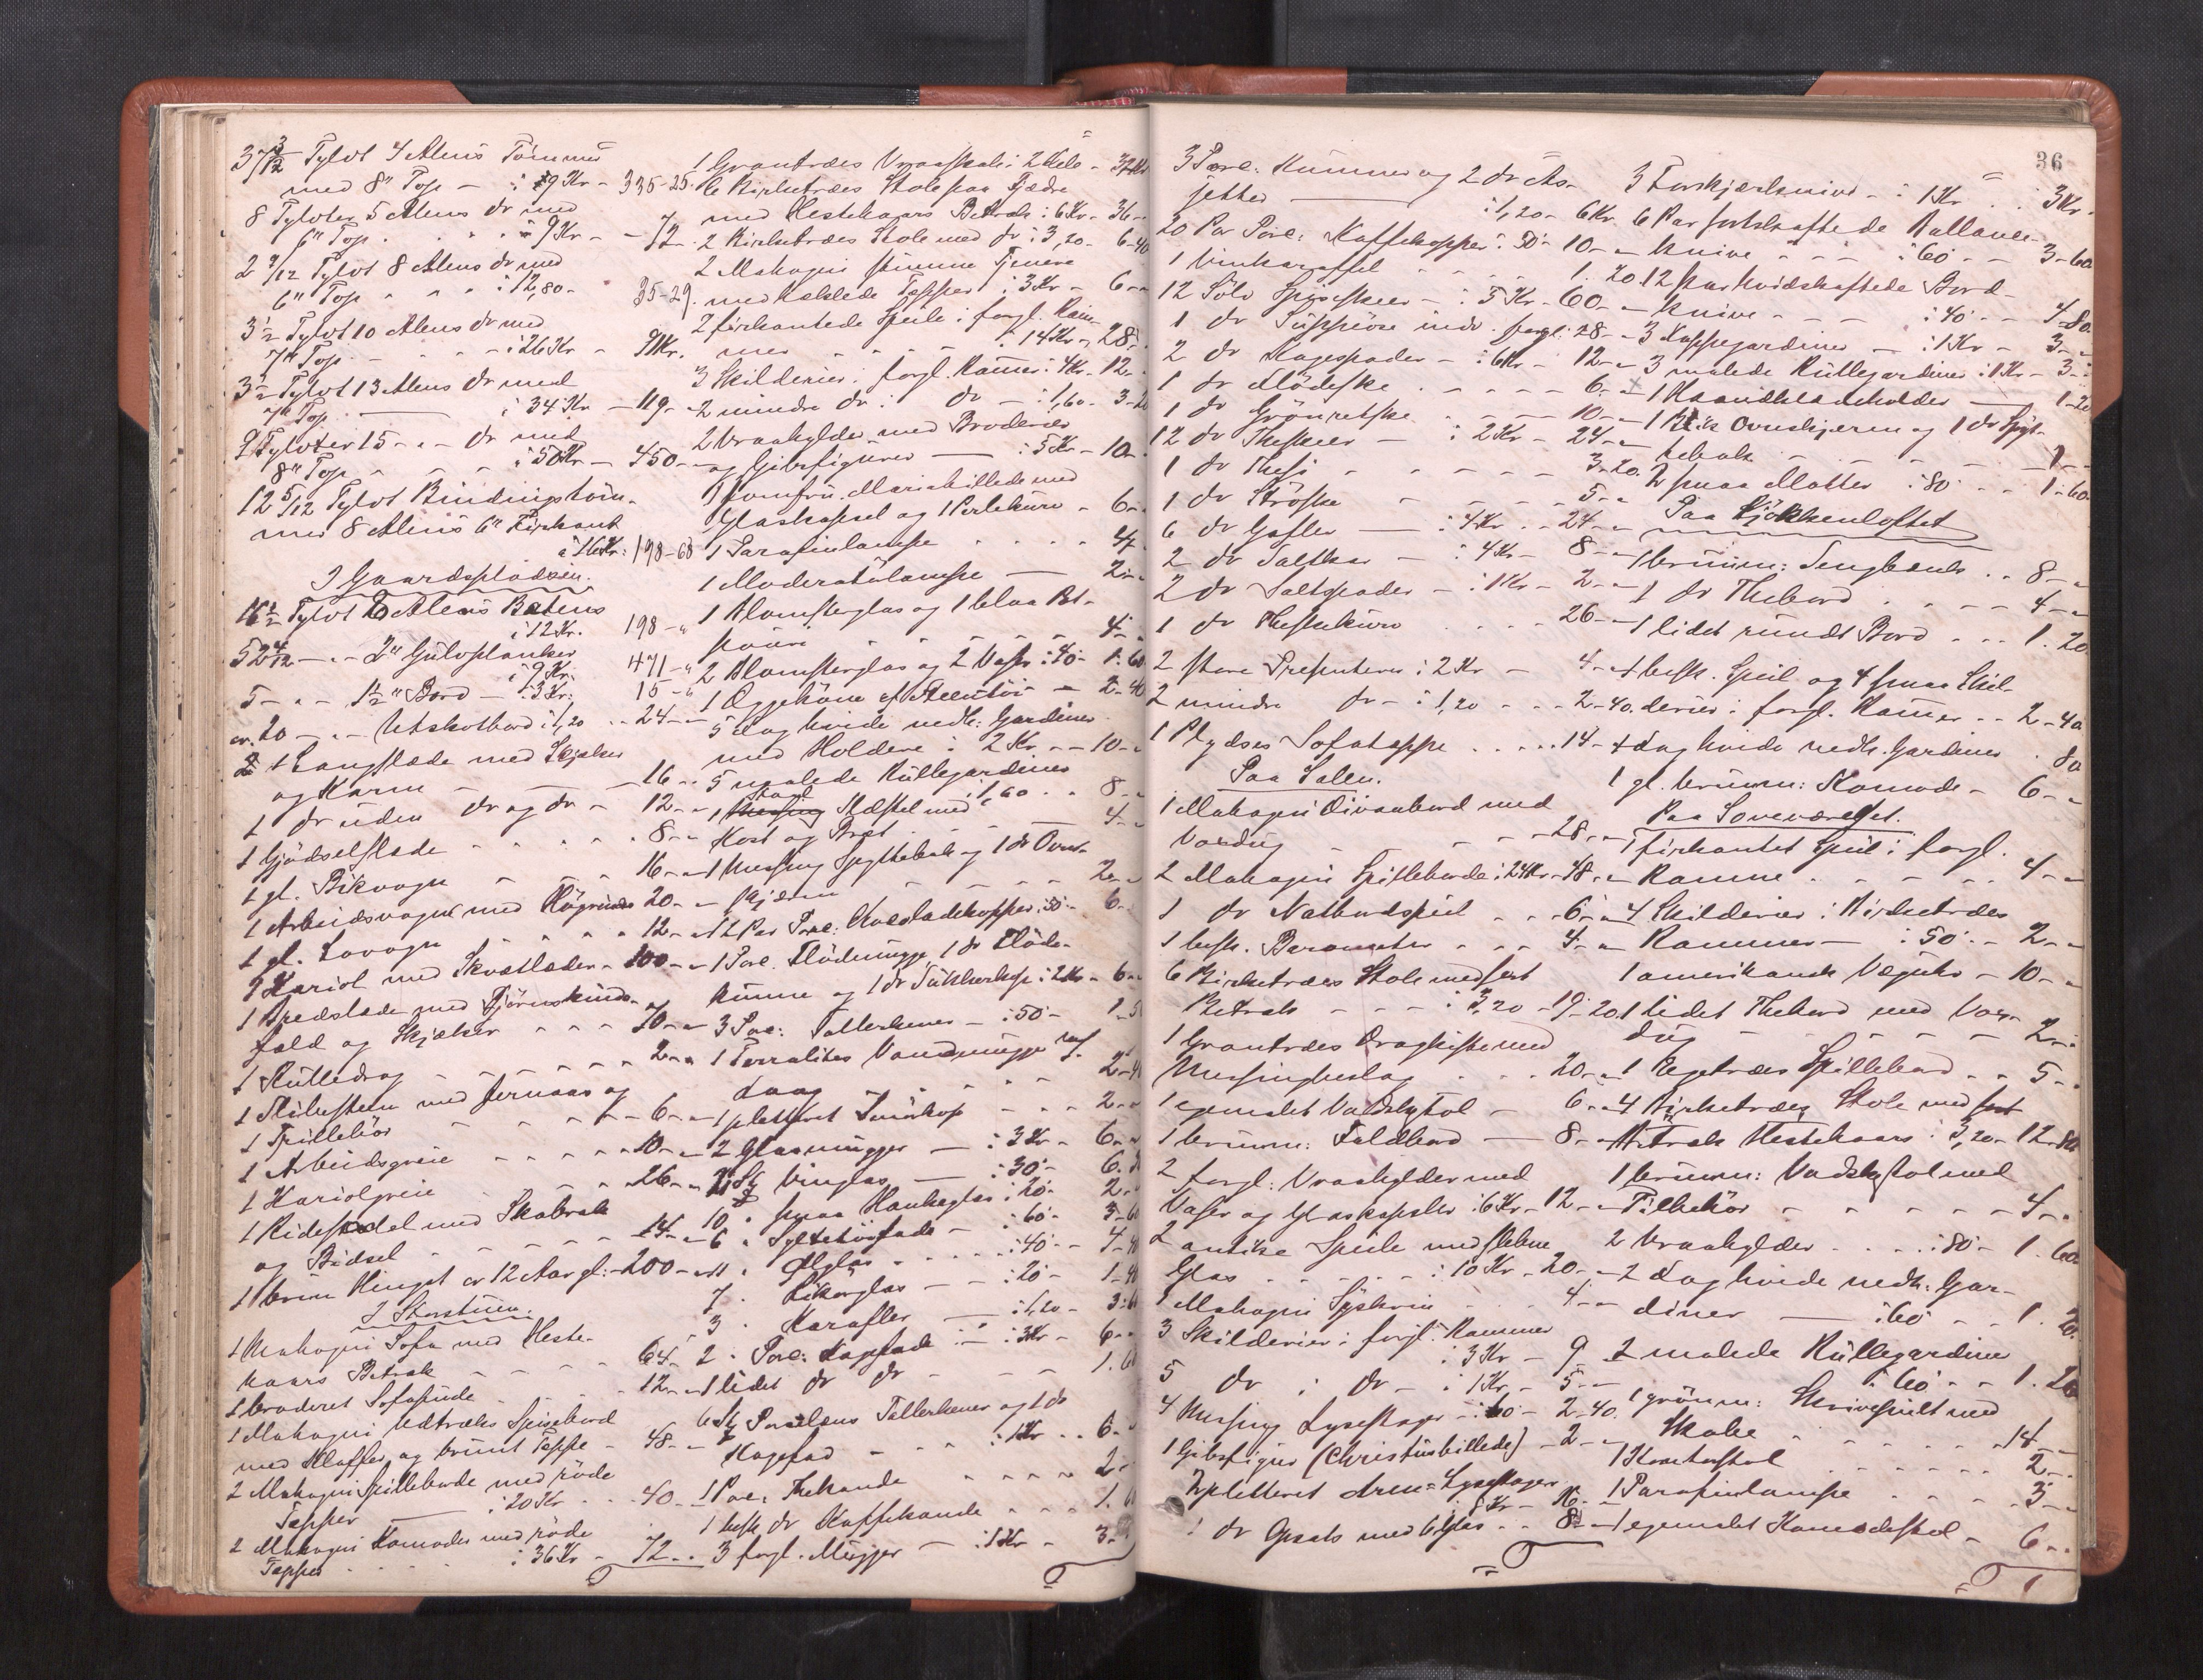 37 3/12 Tylvt 4 Alens Tømmer
med 8" Top - à 9 Kr - 335-25.
8 Tylvter 5 Alens do med
6" Top . . . à 9 Kr - 72 -
2 9/12 Tylvt 8 Alens do med
6" Top - - à 12,80 - 35-29.
3 1/2 Tylvt 10 Alens do med
7" Top - - - à 26 Kr - 91 Kr.
3 1/2 Tylvt 13 Alens do med
7" Top - à 34 Kr - 119 -
9 Tylvter 15 - " - do med
8" Top - - - à 50 Kr - 450 -
12 5/12 Tylvt Bindingstøm-
mer 8 Alens 6" Firkant
à 16 Kr: 198-68
I Gaardspladsen.
16 1/2 Tylvt Alens Batens
à 12 Kr. 198 - "
52 4/12 - " - 2" Gulvplanker
à 9 Kr. 471 - "
5 - " - 1 1/2" Bord - à 3 Kr: 15 - "
cr. 20 - " - Utskotbord à 1,20 .. 24 -
1 Langslæde med Skjæker
og Karm - - 16 -
1 do uden do og do - 12 - "
1 Gjødselslæde . . . . 8 - "
1 gl. Bikvogn - - 16 -
1 Arbeidsvogn med Høgrinder 20 - "
1 gl. Lovogn . . . . 12 -
1 Kariol med Skvætlæder - 100 - "
1 Spidsslæde med Bjørneskinds-
fæld og Skjæker - - - 70 - "
1 Rulledrag - - - - - 2 - "
1 Slibesten med Jernaas og
1 Trillebør - - - - - 6 - "
1 Arbeidsgreie - - - - 10 - "
1 Kariolgreie . . . . 26 - "
1 Ridesadel med Skaberak
og Bidsel - - - - - 14 - "
1 brun Hingst cr 12 Aar gl: - 200 - "
I Storstuen.
1 Mahogni Sofa med Heste-
haars Betræk - - - 64 -
1 broderet Sofapude . . . 12 -
1 Mahogni Udtræks Spisebord
med Klaffer og brunt Tæppe - 48 -
2 Mahogni Spilleborde med røde
Tæpper - à 20 Kr . . 40 -
2 Mahogni Komoder med røde
Tæpper - - - à 36 Kr - 72 . .
1 Grantræes Vraaskab i 2 Dele - 32 Kr
6 Birketræes Stole paa Fjædre
med Hestehaars Betræk à 6 Kr - 36 -
2 Birketræes Stole med do à 3,20 - 6-40
2 Mahogni stumme Tjenere
med hæklede Tæpper à 3 Kr - 6 -
2 firkantede Speile i forgl. Ram-
mer - - - - à 14 Kr - 28 -
3 Skilderier i forgl. Ramer à 4 Kr - 12 -
2 mindre do i do - à 1,60 . 3-20
2 Vraahylder med Broderier
og Gibsfigurer - à 5 Kr - 10 -
1 Jomfru Mariabillede med
Glaskapsel og 1 Perlekurv - 6 -
1 Parafinlampe . . . . 4 -
1 Moderatørlampe - 2 -
1 Blomsterglas og 1 blaa Pot-
pouri - - - - - - 4 -
2 Blomsterglas og 2 Vaser à 40 - 1.60
1 Æggehøne af Steentøi - 2-40
5 Fag hvide nedh: Gardiner
med Holdere à 2 Kr - - 10 - "
5 malede Rullegardiner
à 1,60 . . 8 - "
1 med
Kost og Bræt . . . - - 4 - "
1 Messing Spyttebak og 1 do Ovns-
skjærm - - - - - - 2 - "
12 Par Porc: Chocoladekopper à 50 - 6 -
1 Porc. Flødemugge 1 do Fløde-
kumme og 1 do Sukkerkop à 2 Kr - 6 -
3 Porc: Tallerkener - à 50 - 1-50
1 Terralites Vandmugge m/
Laag - - - - - - 2-40
1 pletteret Smørkop - - - 2 - "
2 Glasmugger - à 3 Kr - 6 -
Stk Vinglas - à 30 - 6.
10 " smaa Hankeglas à 20 - 2 -
6 " Syltetøisfade - à 60 - 3-60
11 " Ølglas . . . . à 40 - - 4-40
7 " Likørglas - - à 20 - 1-40
3 " Karafler - à 1,20 - 3-60
2 " Porc: Kagefade - à 3 Kr - 6 -
1 lidet do do - - - 1.60
6 Stk Porcelæns Tallerkener og 1 do
Kagefad - - - à 1 Kr . . 6 -
1 Porc: Thekande - - - - - 2 -
1 besk do Kaffekande . . . 1.60
3 forgl. Mugger - à 1 Kr - 3 -
36
3 Porc: Kummer og 2 do As-
jetter - à 1,20 - 6 Kr
20 Par Porc: Kaffekopper à 50 - 10 - "
1 Vinkaraffel - - - - 1.20
12 Sølv Spiseskeer - à 5 Kr - 60 - "
1 do Suppeøse indv. forgl: 28 - "
2 do Kagespader - à 6 Kr - 12 - "
1 do Flødeske . . . . . 6 - "
1 do Grønretske . - - - 10 - "
12 do Theskeer - à 2 Kr - 24 - "
1 do Thesi - - - - - 3-20.
1 do Strøske - - - - 5 - "
6 do Gafler - à 4 Kr . - 24 - "
2 do Saltkar - à 4 Kr - 8 - "
2 do Saltspader - à 1 Kr - 2 - "
1 do Theskekurv . . . . 26 - "
2 store Presenterer à 2 Kr - 4 - "
2 mindre do - à 1,20 . . . 2-40.
1 Plydses Sofatæppe . . . . 14 -
Paa Salen.
1 Mahogni Divanbord med
Voxdug - - - - 28 - "
2 Mahogni Spilleborde à 24 Kr - 48 - "
1 do Natbordspeil - - - 6 - "
1 besk. Barometer - - - 4 - "
6 Birketræes Stole med sort
Betræk - - - à 3,20 - 19-20
1 Grantræes Dragkiste med
Messingbeslag . . . 20 - "
1 egemalet Vadskstol - 6 - "
1 brunm: Foldbord - 8 - "
2 forgl: Vraahylder med
Vaser og Glaskapsler à 6 Kr - 12 - "
2 antike Speile med slebne
Glas . - - - - à 10 Kr - 20 - "
1 Mahogni Syskrin - - 4 - "
3 Skilderier i forgl: Rammer
à 3 Kr - 9 -
5 do i do - à 1 Kr - 5 - "
4 Messing Lysestager - à 60 - 2-40.
1 Gibsfigur (Christusbillede) - 2 - "
2 pletteret Arm=Lysestager
à 8 Kr - 16 - "
1 do Opsats med 6 Glas . . 8 - "
3 Forskjærknive - à 1 Kr . . 3 Kr.
6 Par sortskaftede Ballance-
knive - - - à 60 - - 3-60
12 Par hvidskaftede Bord-
knive - - - à 40 - - 4-80
3 Kappegardiner - à 1 Kr - 3 - "
3 malede Rullegardiner à 1 Kr - 3 -
1 Haandklædeholder - 1-20
1 Blik Ovnskjærm og 1 do Spyt-
tebak - - - - - - 1 - "
2 smaa Matter à 80 - - 1-60
Paa Kjøkkenloftet
1 brunm: Sengbænk . . 8 - "
1 do Thebord . . . . 4 - "
1 lidet rundt Bord . . . 1.20
1 besk. Speil og 4 smaa Skil-
derier i forgl. Ramer - - 2-40
1 Fag hvide nedh. Gardiner . 80
1 gl. brunm: Komode - 6 - "
Paa Soveværelset.
1 firkantet Speil i forgl.
Ramme . . . . . 4 - "
4 Skilderier i Birketræes
Rammer - à 50 - - 2 - "
1 amerikansk Væguhr - 10 - "
1 lidet Thebord med Vox-
dug - - - - - - 2 -
1 Egetræes Spillebord . . 5 -
4 Birketræes Stole med sort
Betræk Hestehaars à 3,20 - 12-80
1 brunm: Vadskstol med
Tilbehør - - - - - - 4 -
2 Vraahylder . . . . à 80 - 1.60
2 Fag hvide nedh: Gar-
diner - à 60 - - 1.20
2 malede Rullegardiner
à 60 - - 1.20
1 grønm: Skrivepult med
Skabe . . . . . . . 14 -
1 Kontorstol . . . . . . 2 -
1 Parafinlampe . . . . 3 - "
1 egemalet Komodeskab - 6 - "